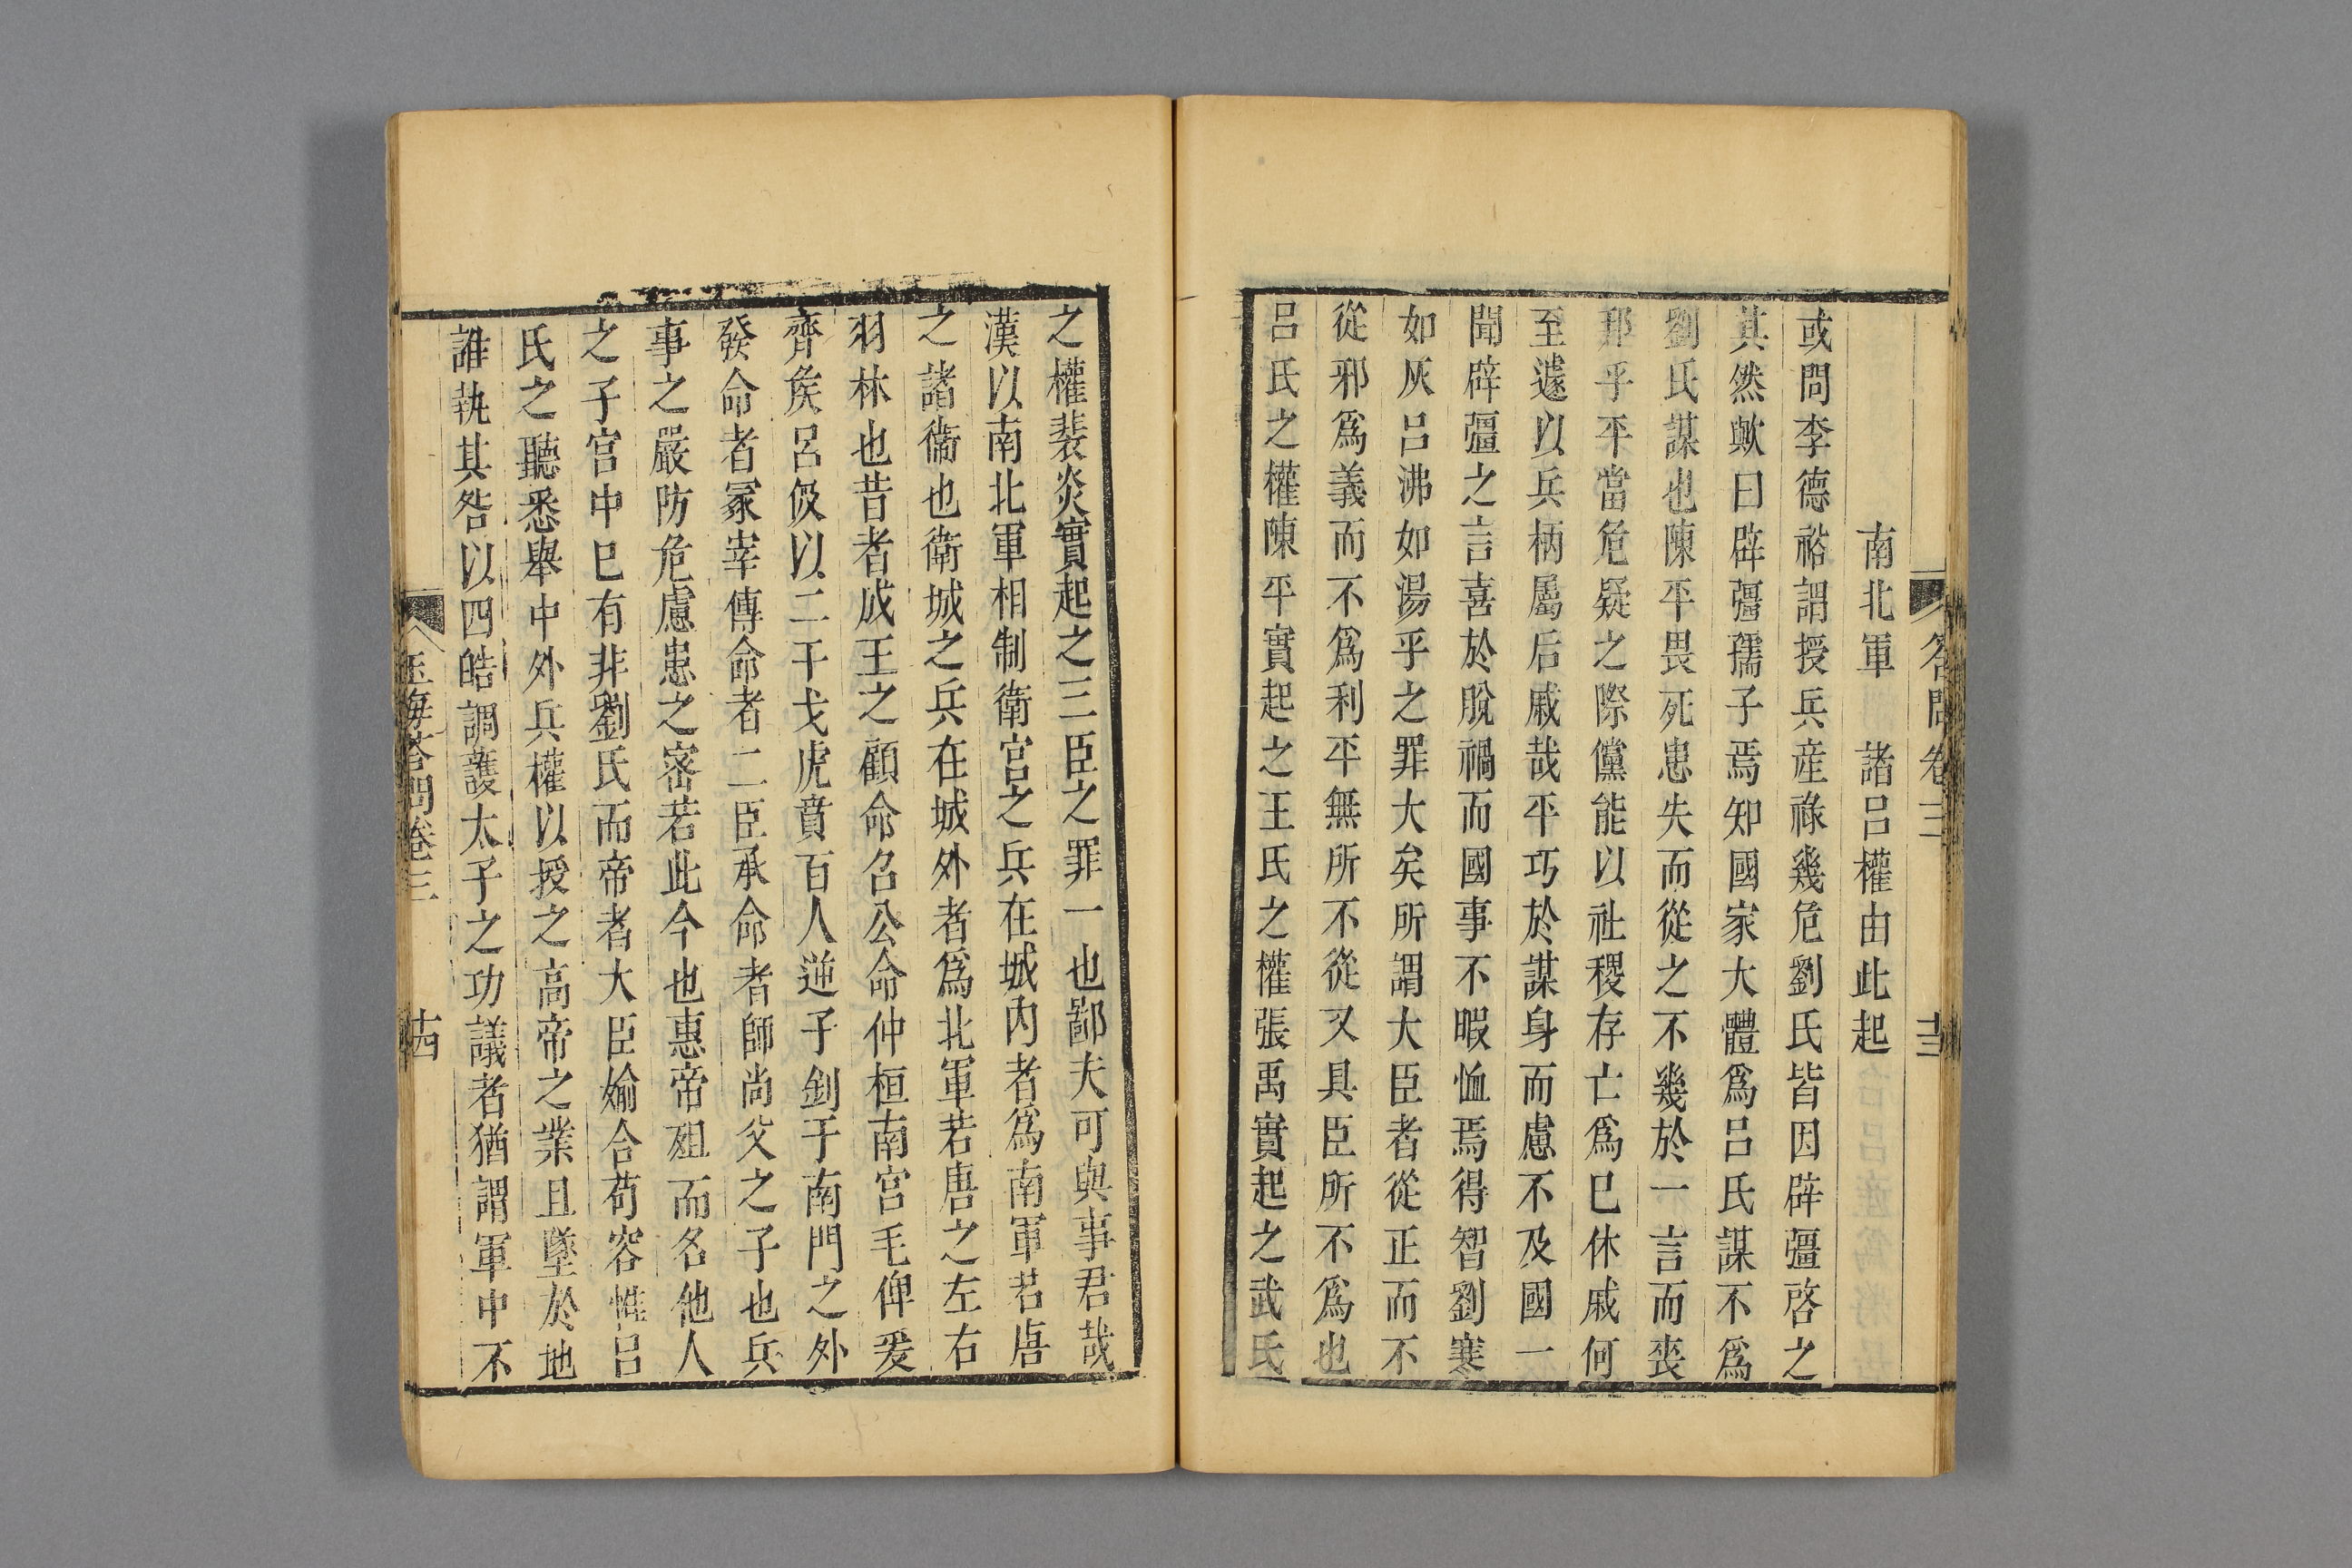 答問卷三 十三
南北軍 諸呂權由此起
或問李德裕謂授兵産祿幾危劉氏皆因辟彊啓之
其然歟曰辟彊孺子焉知國家大體爲呂氏謀不爲
劉氏謀也陳平畏死患失而從之不幾於一言而喪
邦乎平當危疑之際儻能以社稷存亡爲已休戚何
至遽以兵柄屬后戚哉平巧於謀身而慮不及國一
聞辟彊之言喜於脫禍而國事不暇恤焉得智劉寒
如灰呂沸如湯平之罪大矣所謂大臣者從正而不
從邪爲義而不爲利平無所不從又具臣所不爲也
呂氏之權陳平實起之王氏之權張禹實起之武氏
之權裴炎實起之三臣之罪一也鄙夫可與事君哉
漢以南北軍相制衛宮之兵在城內者爲南軍若唐
之諸衞也衛城之兵在城外者爲北軍若唐之左右
羽林也昔者成王之顧命召公命仲桓南宮毛俾爰
齊侯呂伋以二干戈虎賁百人逆子釗于南門之外
發命者冢宰傳命者二臣承命者師尚父之子也兵
事之嚴防危慮患之密若此今也惠帝殂而名他人
之子宮中已有非劉氏而帝者大臣媮合苟容惟呂
氏之聽悉舉中外兵權以授之高帝之業且墜於地
誰執其咎以四皓調護太子之功議者猶謂軍中不
玉海答問卷三 十四